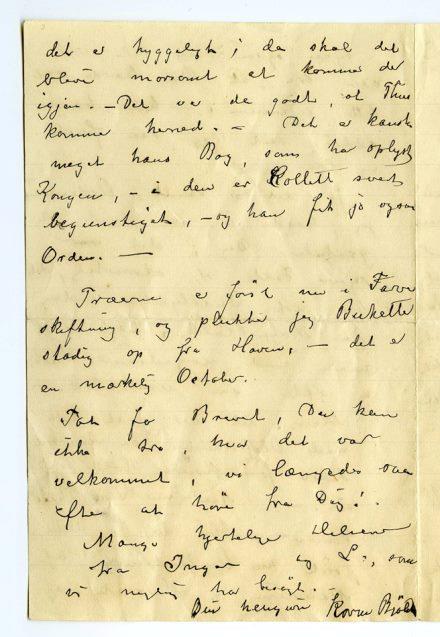 det er hyggeligt; da skal det
blive morsomt at komme der
igjen. – Det var da godt, at Thue
komme herned. – Det er kanske
meget hans Bog, som har oplyst
Kongen, – i den er Collett svært
begunstiget, – og han fik jo ogsaa
Orden. —
Træerne er først nu i Farve
skiftning, og plukker jeg Buketter
stadig op fra Haven, – det er
en mærkelig October.
Tak for Brevet, Du kan
ikke tro, hvor det var
velkomment, vi længtedes saa
efter at höre fra Dig!
Mange hjertelige Hilsener
fra Inga og L., som
vi nylig har besøgt. –
Din hengivne